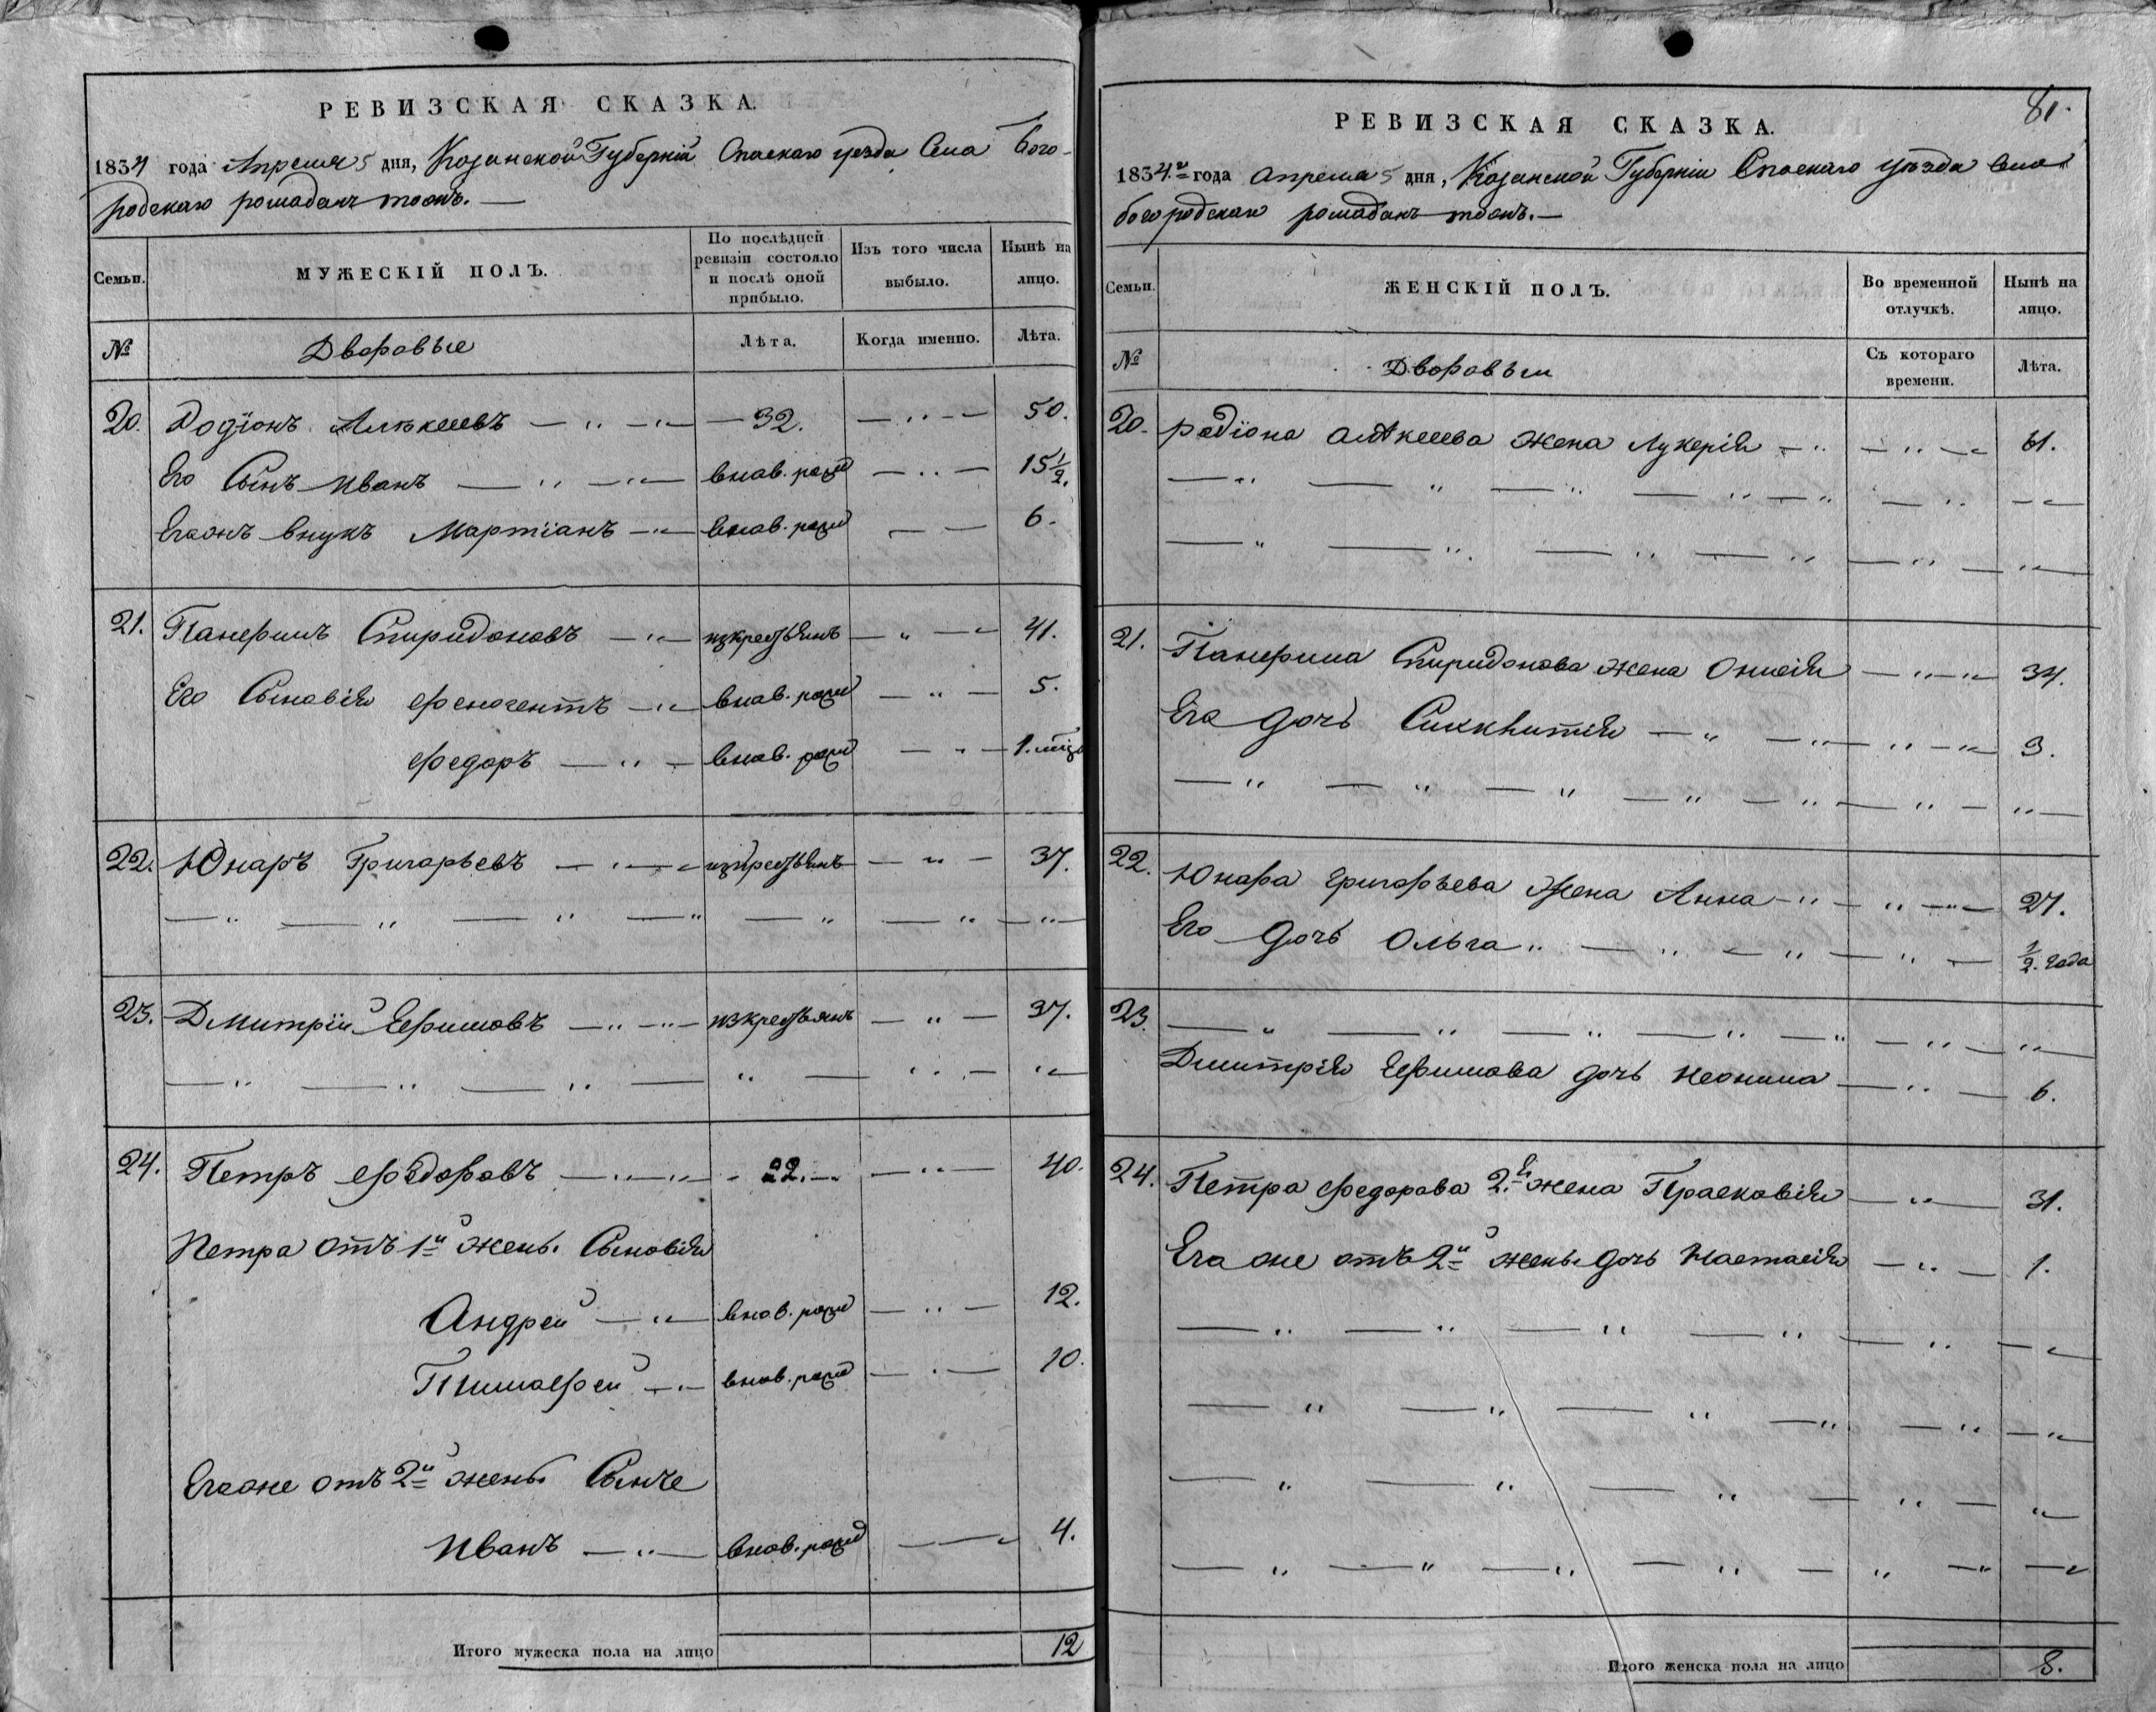 РЕВИЗСКАЯ СКАЗКА.
1834 года Апреля 5 дня, Казанской Губерніи Спаскаго уезда Села Бого-
родскаго ромадан тожъ. —
Семьи. МУЖЕСКІЙ ПОЛЪ. По послѣдней ревизіи состояло и послѣ оной прибыло. Изъ того числа выбыло. Нынѣ на лицо.
№ Дворовые Лѣта. Когда именно. Лѣта.
20. Родіонъ Алѣксеевъ 32. 50.
Его Сынъ Иванъ внов. рож 15 1/2.
Егожъ внукъ Мартіанъ внов. рож 6.
21. Панфилъ Спиридоновъ изкрестьянъ 41.
Его Сыновія Феногентъ внов. рож 5.
Федоръ внов. рож 1.
22. Юнаръ Григорьевъ изкрестьянъ 37.
23. Дмитрій Ефимовъ изкрестьянъ 37.
24. Петръ Федоровъ 22. 40.
Петра отъ 1й жены Сыновія
Андрей внов. рож 12.
Тимофей внов. рож 10.
Егоже отъ 2й жены Сынъ
Иванъ внов. рож 4.
Итого мужеска пола на лицо 12
81.
РЕВИЗСКАЯ СКАЗКА.
1834 года апреля 5 дня, Казанской Губерніи Спаскаго уѣзда Села
богородскаго ромаданъ тожъ. —
Семьи. ЖЕНСКІЙ ПОЛЪ. Во временной отлучкѣ. Нынѣ на лицо.
№ Дворовыи Съ котораго времени. Лѣта.
20. родіона алѣксеева жена Лукерія 61.
21. Панфила Спиридонова жена 34.
Его дочь 3.
22. Юнара григорьева жена Анна 27.
Его дочь Ольга 1/2. года
23.
Дмитрія Ефимова дочь Неонила 6.
24. Петра Федорова 2я жена Прасковія 31.
Его же отъ 2й жены дочь Настасія 1.
Итого женска пола на лицо 8.